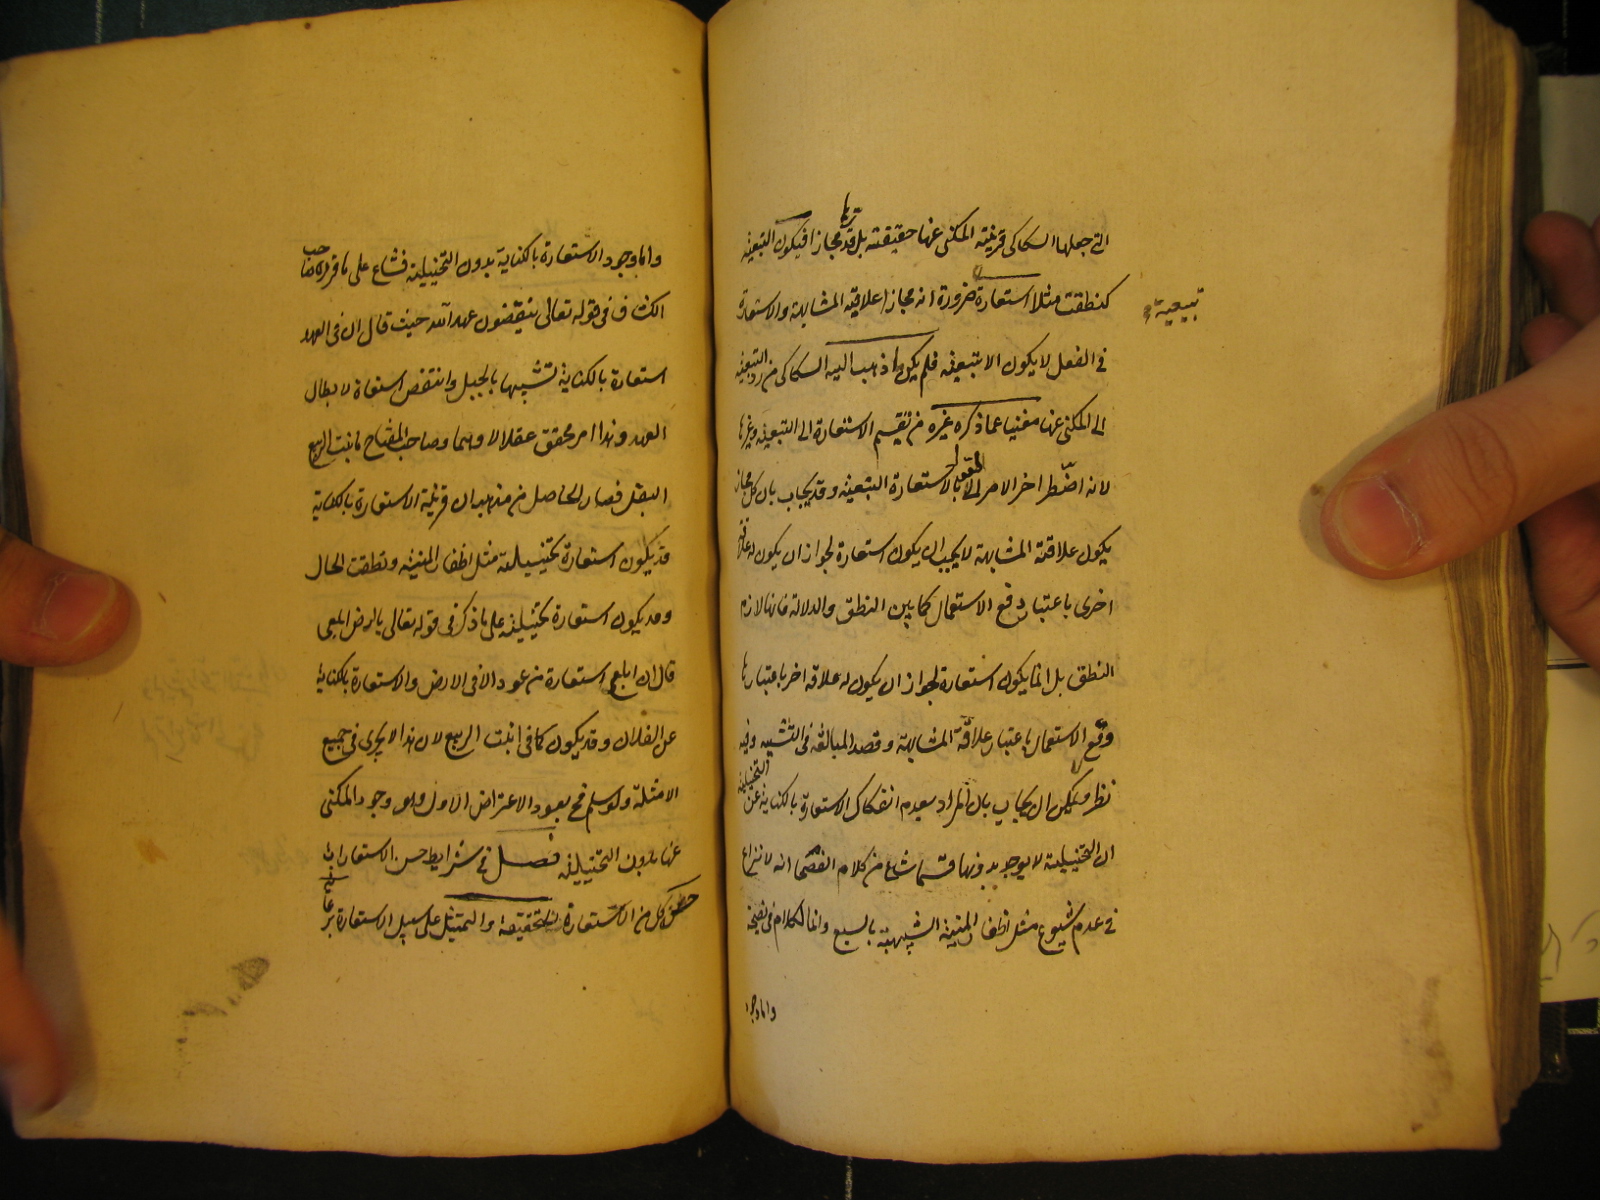 التى جعلها السكاكى قرينة المكنى عنها حقيقة بل قدرها مجازا فيكون التبعية
كنطقت مثلا استعارة ضرورة انه مجاز اعلاقته المشابهة والاستعارة
تبيعية
فى الفعل لا يكون الا تبعية فلم يكن ما ذهب اليه السكاكى من رد التبعية
الى المكنى عنها مغنيا عما ذكره غيره من تقسيم الاستعارة الى التبعية وغيرها
لانه اضطر اخر الامر الى القول بالاستعارة التبعية وقد يجاب بان كل مجاز
يكون علاقته المشابهة لا يجب ان يكون استعارة لجواز ان يكون له علاقة
اخرى باعتبارها وقع الاستعمال كما بين النطق والدلالة فانها لازم
النطق بل انما يكون استعارة لجواز ان يكون له علاقة اخر باعتبارها
وقع الاستعمال باعتبار علاقة المشابهة وقصد المبالغة فى التشبيه وفيه
نظر ويمكن ان يجاب بان المراد بعدم انفكاك الاستعارة بالكناية عن التخييلية
ان التخييلية لا يوجد بدونها فيما شاع من كلام الفصحا اذ لا نزاع
فى عدم شيوع مثل اظفار المنية الشبيهة بالسبع وانما الكلام فى الصحة
واما وجود
واما وجود الاستعارة بالكناية بدون التخييلية فشاع على ما قرره صاحب
الكشاف فى قوله تعالى ينقضون عهد الله حيث قال ان فى العهد
استعارة بالكناية تشبيها بالحبل وانتقض استعارة لابطال
العهد وهذا امر محقق عقلا لا وهما وصاحب المفتاح فى انبت الربيع
البقل فصار الحاصل من مذهبه ان قرينة الاستعارة بالكناية
قد يكون استعارة تخييلية مثل اظفار المنية ونطقت الحال
وقد يكون استعارة تحقيقية على ما ذكر فى قوله تعالى يا ارض ابلعى
قال ان ابلعى استعارة من غور الماء فى الارض والاستعارة بالكناية
عن الغذاء وقد يكون كما فى انبت الربيع لان هذا لا يجرى فى جميع
الامثلة ولو سلم فح يعود الاعتراض الاول وهو وجود المكنى
عنها بدون التخييلية فصل فى شرايط حسن الاستعارات
حسن كل من الاستعارة التحقيقية والتمثيل على سبيل الاستعارة برعاية